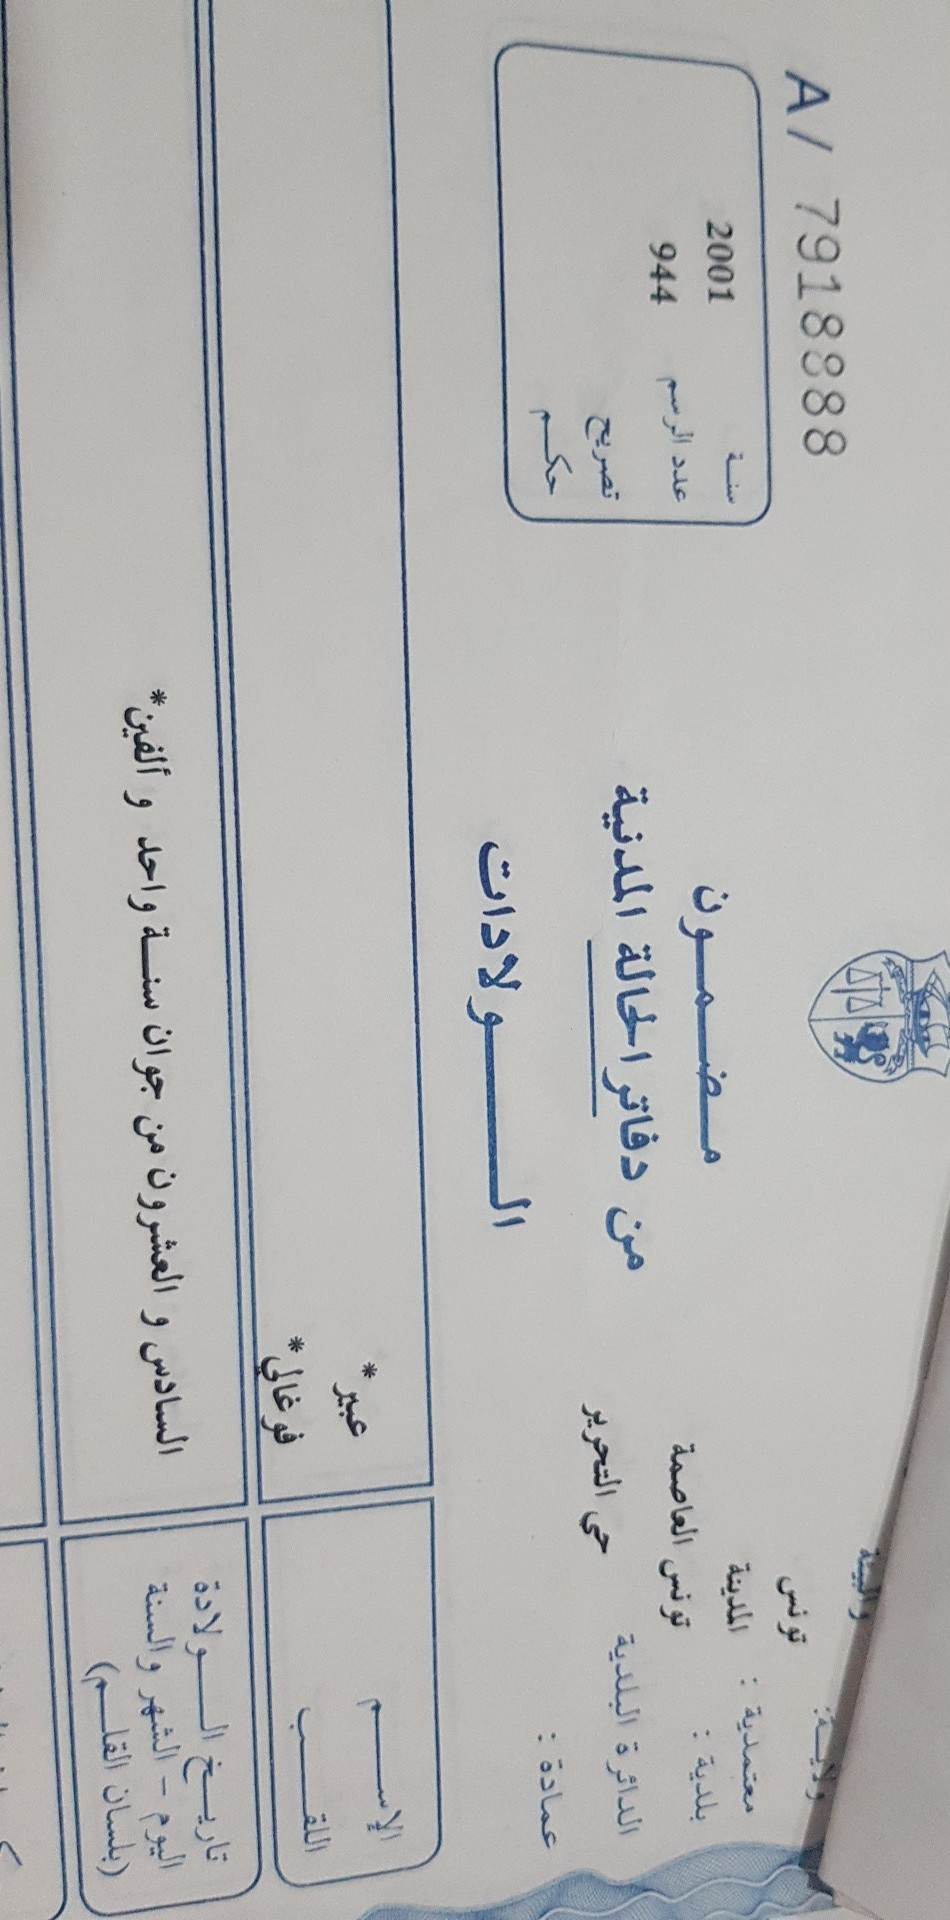 والبيئة
ولايـــة: تونس
معتمدية : المدينة
بلدية : تونس العاصمة
الدائرة البلدية حي التحرير
عمادة :
A/ 7918888
سنـة 2001
عدد الرسم 944
تصريح
حكـــم
مــضــمــون
من دفاتر الحالة المدنية
الــــولادات
الإســــم عبير*
اللقــــب فوغالي*
تاريــخ الــــولادة
اليوم - الشهر والسنة
(بلسان القلـــم)
السادس و العشرون من جوان سنـة واحد و ألفين*